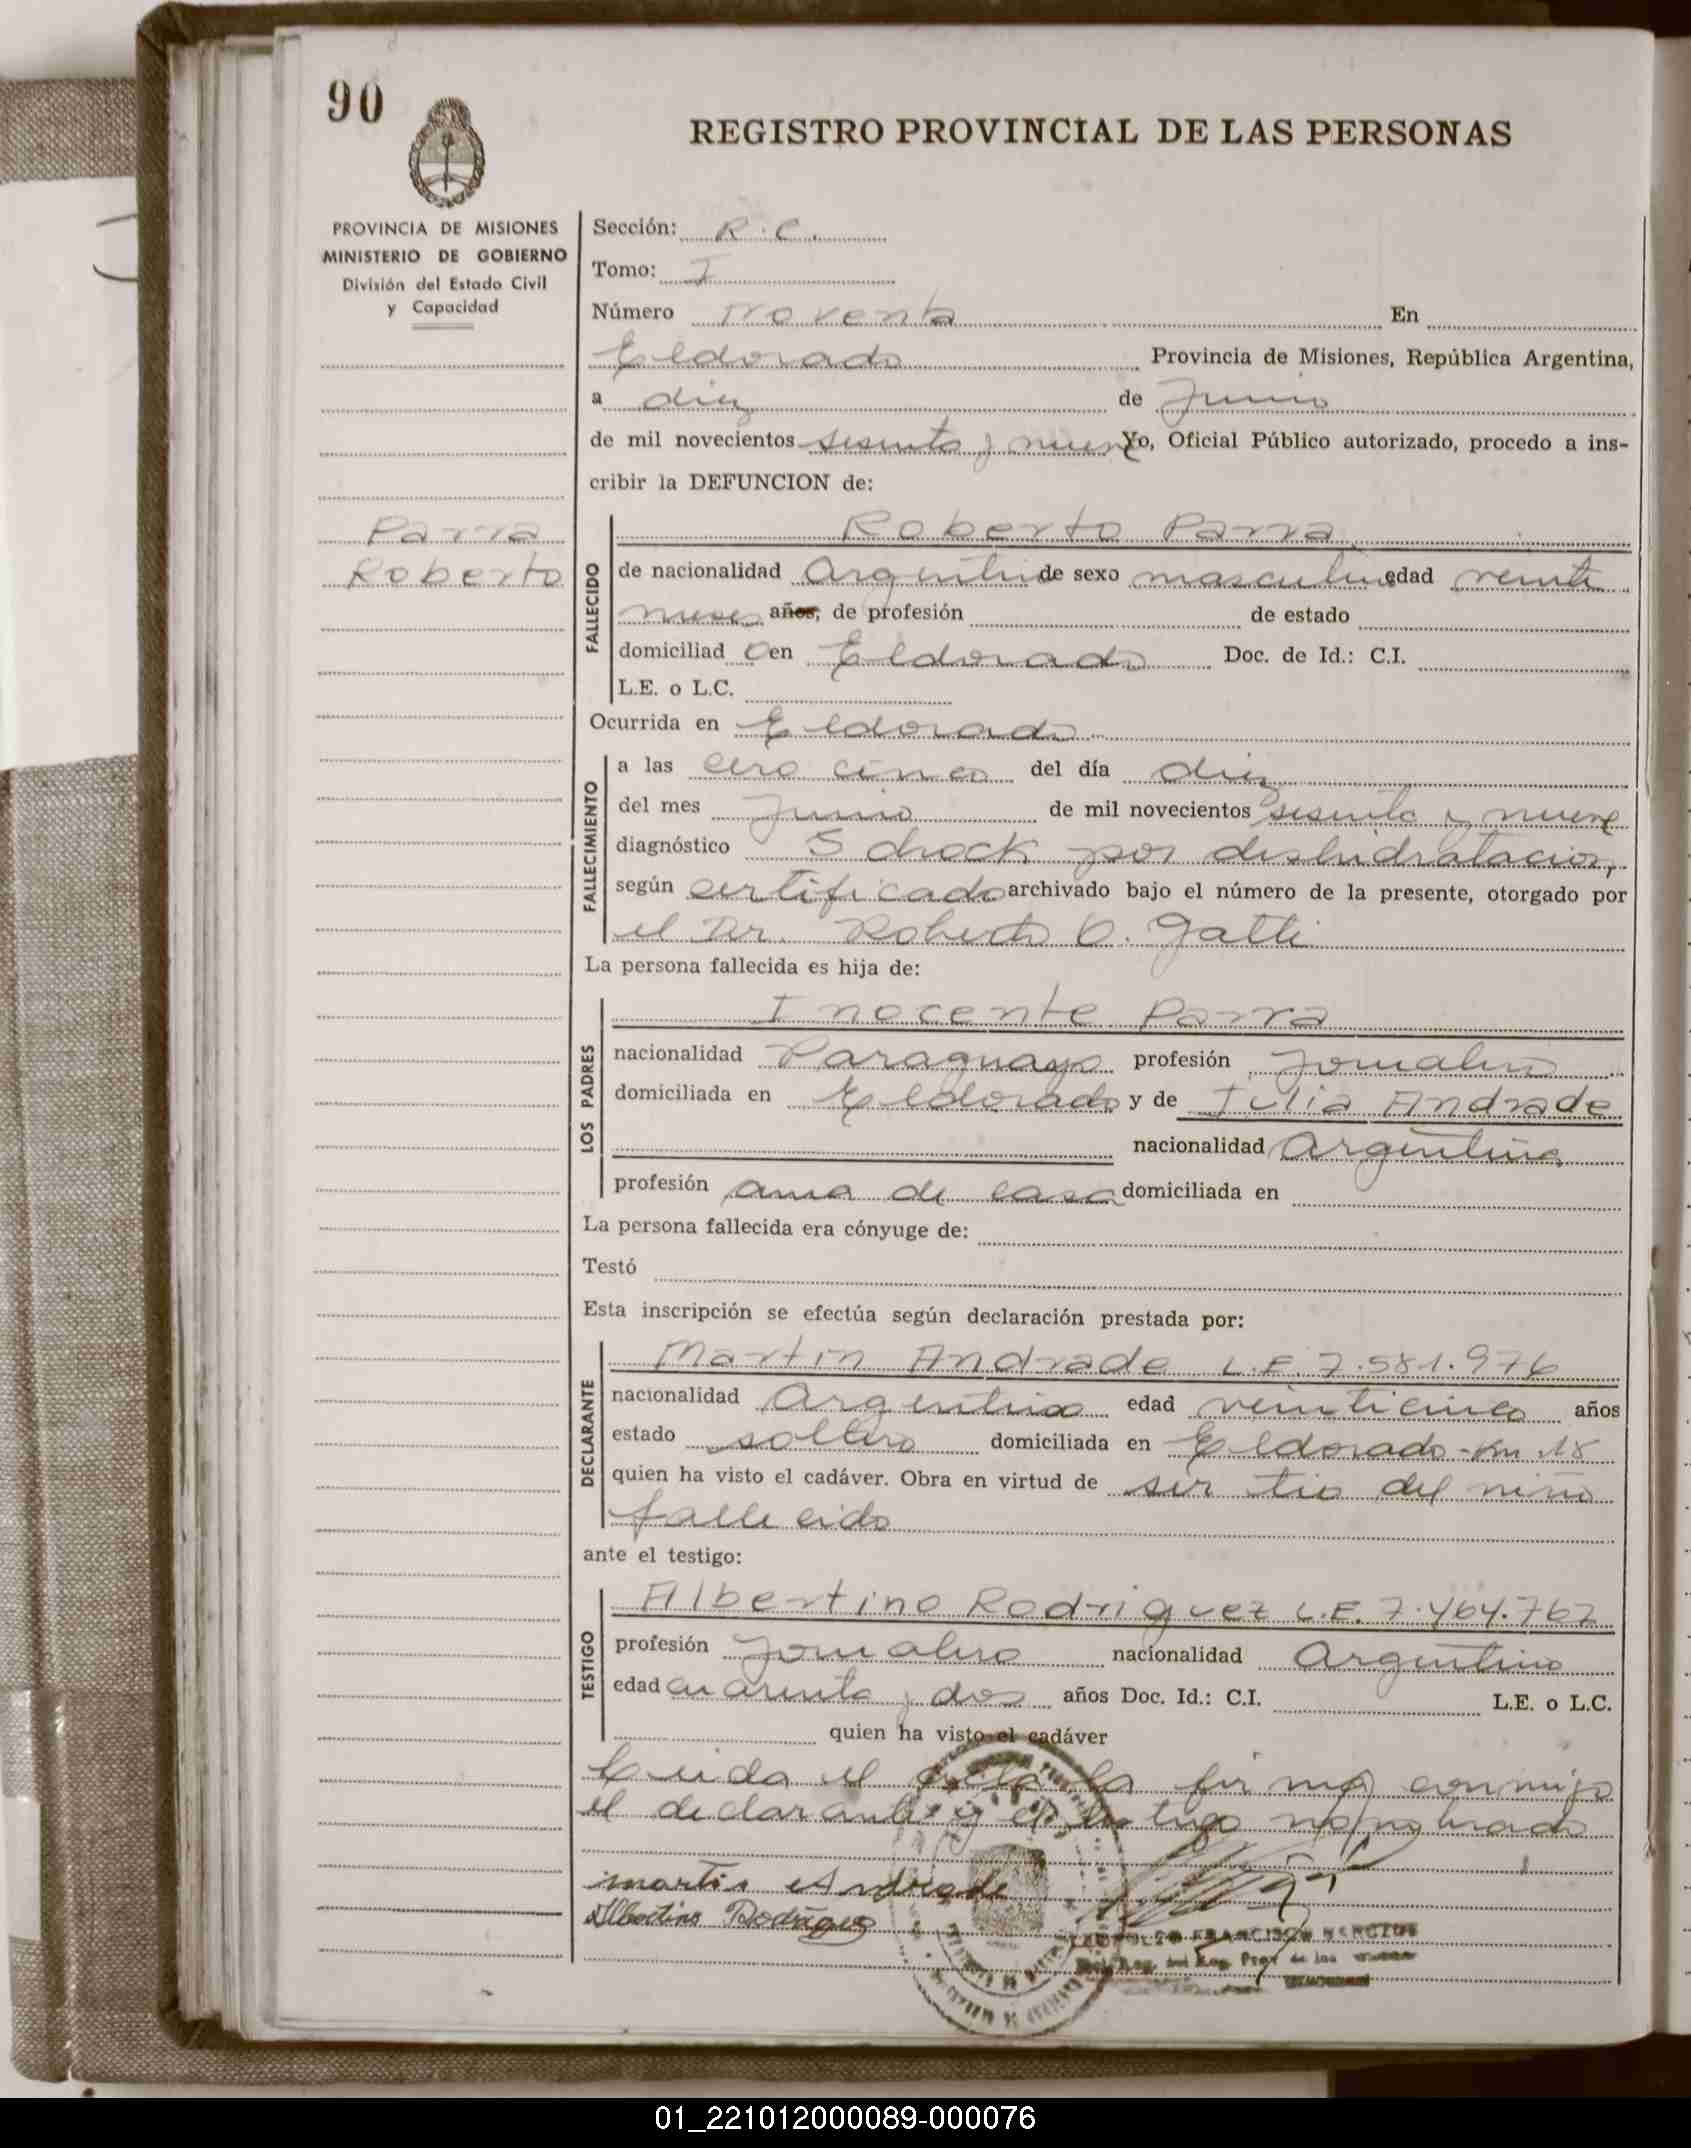 90
REGISTRO PROVINCIAL DE LAS PERSONAS
PROVINCIA DE MISIONES
MINISTERIO DE GOBIERNO
División del Estado Civil
y Capacidad
Parra
Roberto
Sección: R.C.
Tomo: I
Número Noventa En
Eldorado Provincia de Misiones, República Argentina,
a diez de Junio
de mil novecientos sesenta y nueve Yo, Oficial Público autorizado, procedo a ins-
cribir la DEFUNCION de:
FALLECIDO
Roberto Parra
de nacionalidad Argentino de sexo masculino edad veinte
meses años, de profesión de estado
domiciliad o en Eldorado Doc. de Id.: C.I.
L.E. o L.C.
Ocurrida en Eldorado
FALLECIMIENTO
a las cero cinco del día diez
del mes Junio de mil novecientos sesenta y nueve
diagnóstico Schock por deshidratacion,
según certificado archivado bajo el número de la presente, otorgado por
el Dr. Roberto O. Gatti
La persona fallecida es hija de:
LOS PADRES
Inocente Parra
nacionalidad Paraguayo profesión Jornalero
domiciliada en Eldorado y de Julia Andrade
nacionalidad Argentina
profesión ama de casa domiciliada en
La persona fallecida era cónyuge de:
Testó
Esta inscripción se efectúa según declaración prestada por:
DECLARANTE
Martin Andrade L.E. 7.581.976
nacionalidad Argentino edad veinticinco años
estado soltero domiciliada en Eldorado-Km 18
quien ha visto el cadáver. Obra en virtud de ser tio del niño
fallecido
ante el testigo:
TESTIGO
Albertino Rodriguez L.E. 7.464.767
profesión Jornalero nacionalidad Argentino
edad cuarenta y dos años Doc. Id.: C.I. L.E. o L.C.
quien ha visto el cadáver
Leida el acta la firman conmigo
el declarante y el testigo nombrado
martin Andrade
Albertino Rodriguez
LEOPOLDO FRANCISCO
01_221012000089-000076